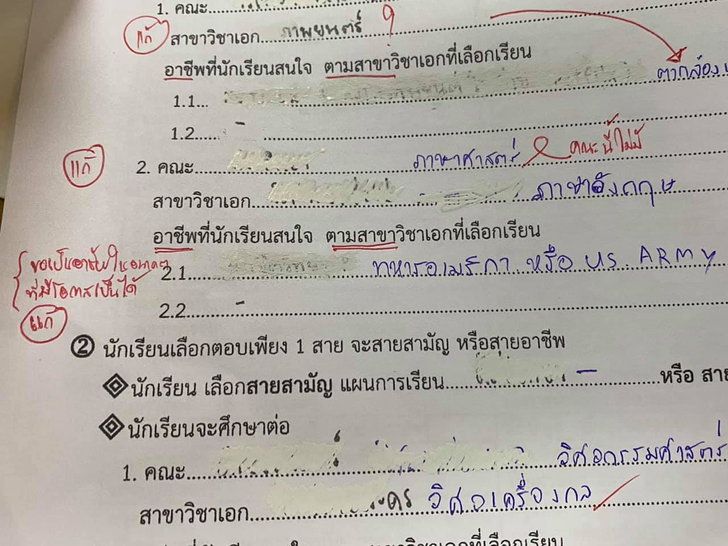 1. คณะ
แก้ สาขาวิชาเอก ภาพยนตร์ ?
อาชีพที่นักเรียนสนใจ ตามสาขาวิชาเอกที่เลือกเรียน
1.1 ตากล้อง
1.2 -
แก้ 2. คณะ ภาษาศาสตร์ คณะนี้ไม่มี
สาขาวิชาเอก ภาษาอังกฤษ
อาชีพที่นักเรียนสนใจ ตามสาขาวิชาเอกที่เลือกเรียน
ขอเป็นอาชีพในอนาคต
2.1 ทหารอเมริกา หรือ US ARMY
ที่มีโอกาสเป็นได้
2.2 -
แก้
② นักเรียนเลือกตอบเพียง 1 สาย จะสายสามัญ หรือสายอาชีพ
นักเรียน เลือกสายสามัญ แผนการเรียน - หรือ สาย
นักเรียนจะศึกษาต่อ
1. คณะ วิศวกรรมศาสตร์
สาขาวิชาเอก วิศวเครื่องกล